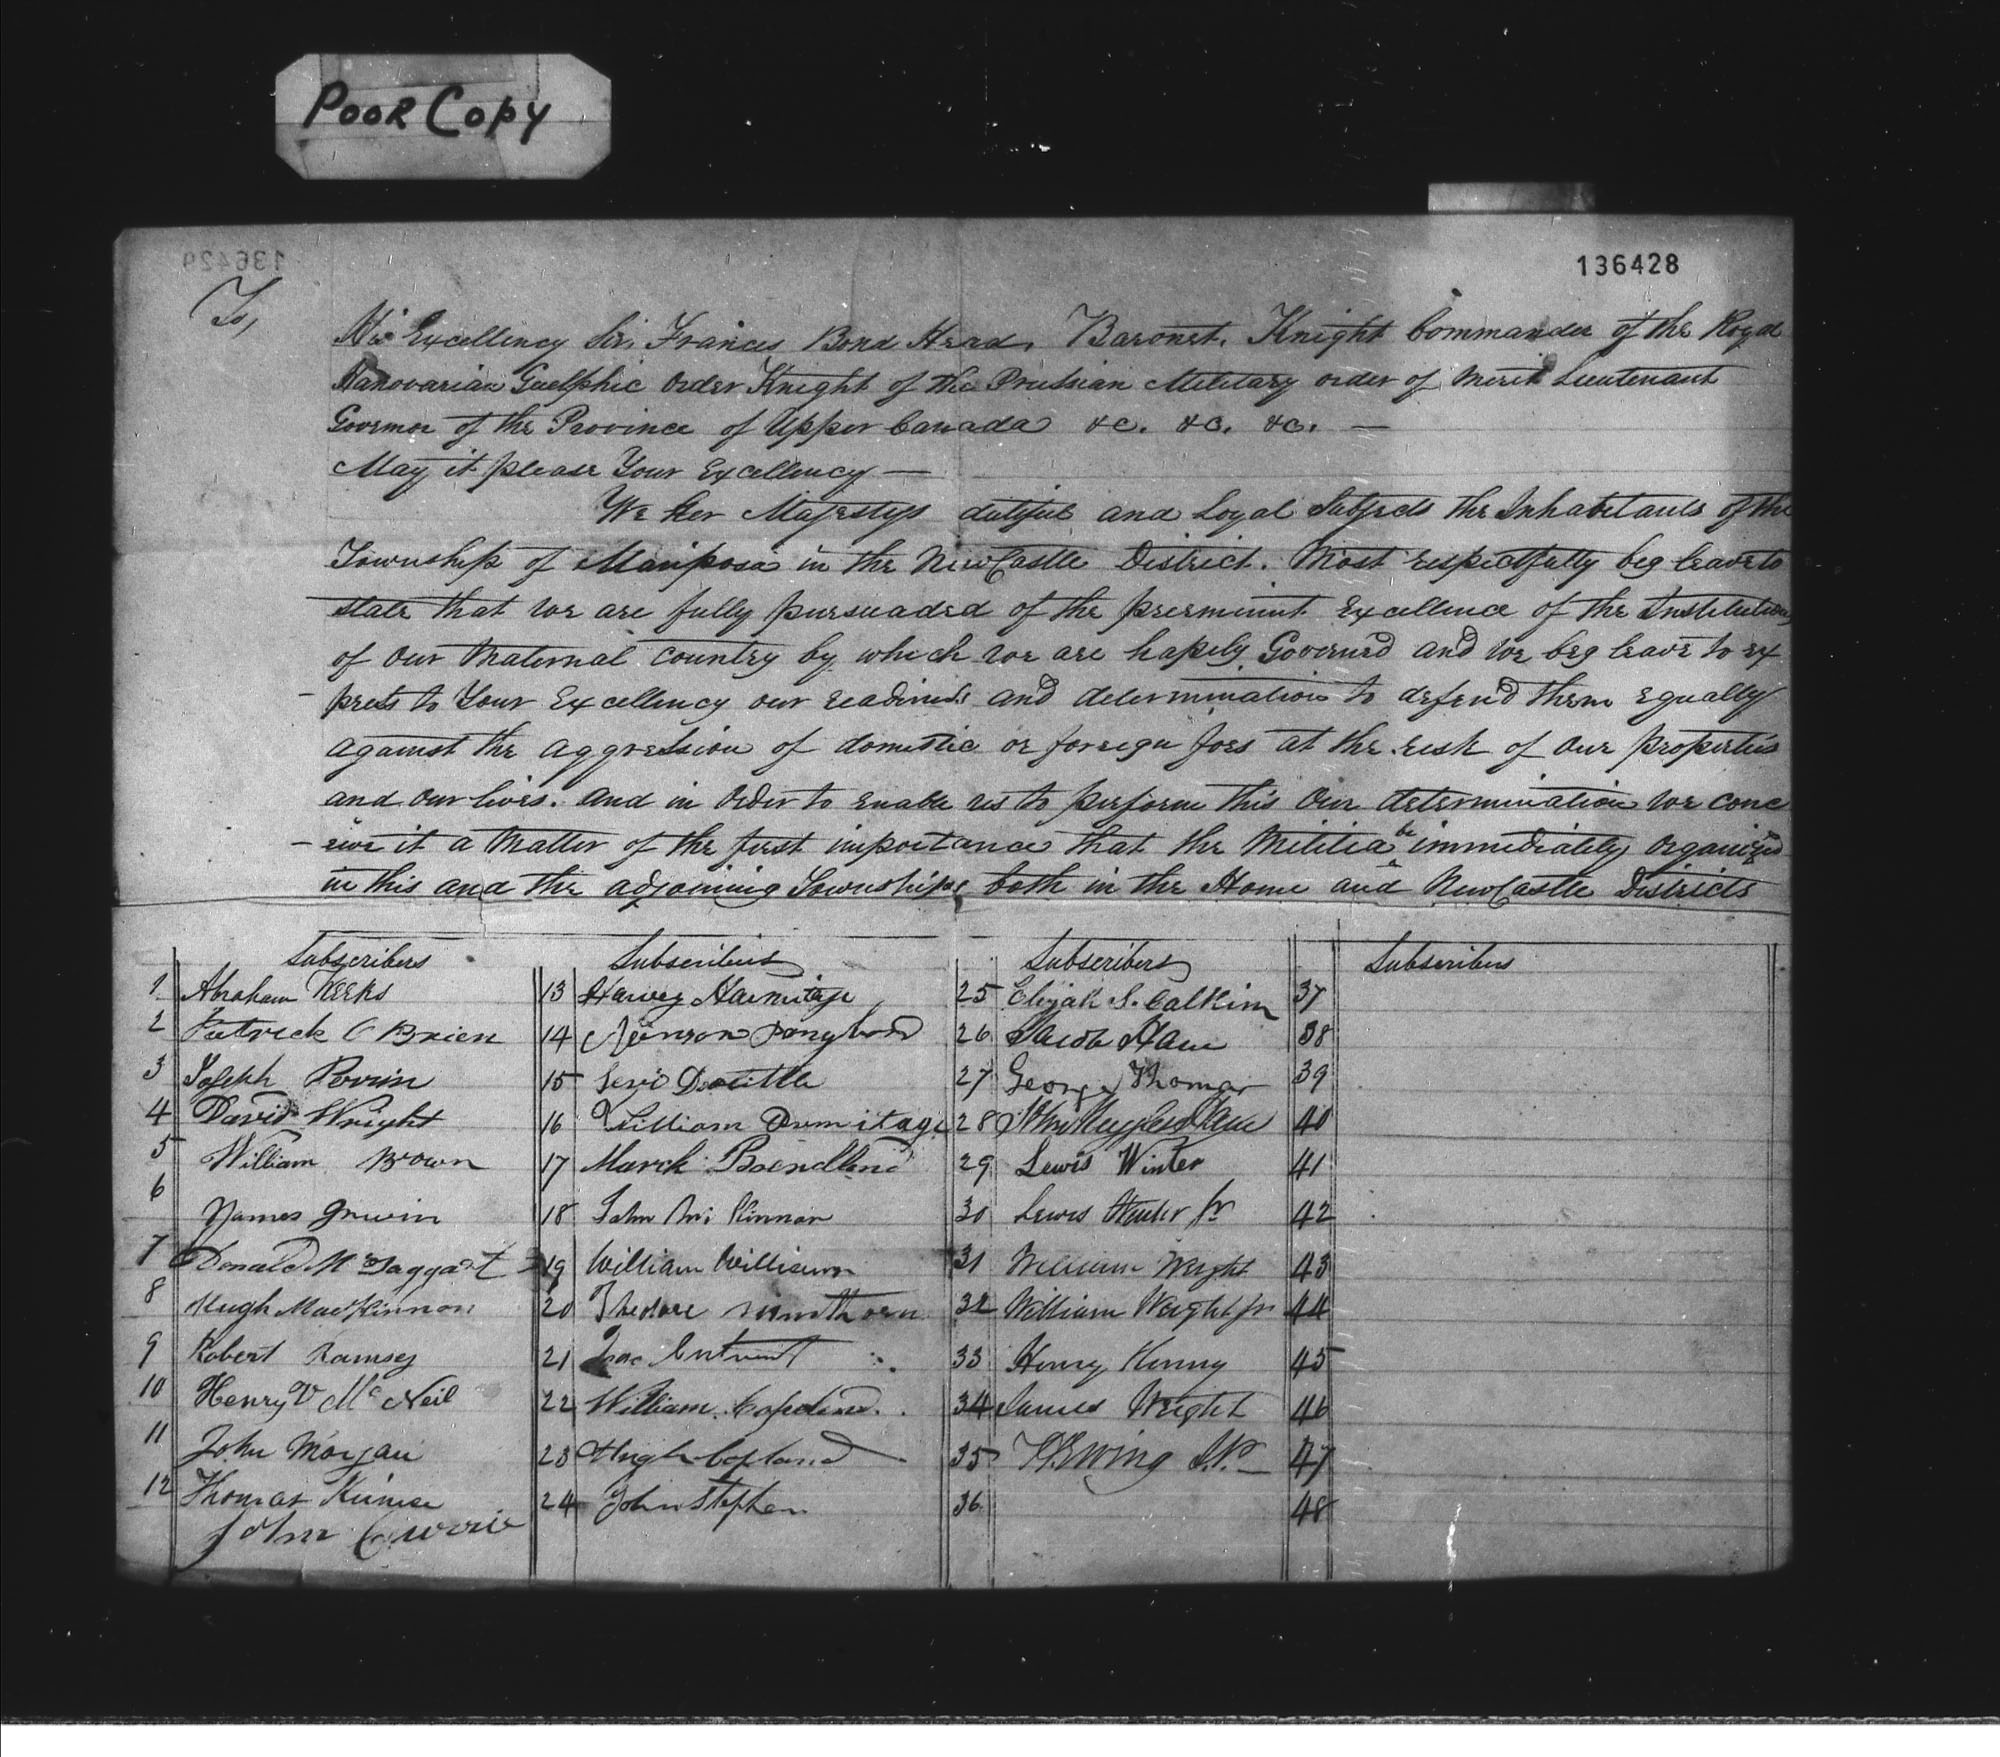 POOR COPY
136429
136428
To,
His Excellency Sir, Francis Bond Head, Baronet. Knight Commander of the Royal
Hanovarian Guelphic Order Knight of the Prussian Military order of Merit Lieutenant
Governor of the Province of Upper Canada &c. &c. &c. —
May it please Your Excellency —
We Her Majestys dutiful and Loyal Subjects the Inhabitants of the
Township of Mariposa in the NewCastle District. Most respectfully beg leave to
state that we are fully pursuaded of the preeminent Excellence of the Institutions
of our Maternal country by which we are hapely Governed and we beg leave to ex
- press to Your Excellency our readiness and determination to defend them equally
against the aggression of domestic or foreign foes at the risk of our properties
and our lives. and in order to enable us to perform this our determination we conc
- eive it a Matter of the first importance that the Militia be immediately organized
in this and the adjoining Townships both in the Home and NewCastle Districts
Subscribers Subscribers Subscribers Subscribers
1 Abraham Weeks 13 Harvey Harmitage 25 Elijah S. Calkins 37
2 Patrick O Brien 14 26 Jacob 38
3 Joseph Perrin 15 Levi Doolittle 27 George Thomas 39
4 David Wright 16 William Armitage 28 John 40
5 William Brown 17 29 Lewis Winter 41
6 James Irwin 18 John Mc Kinnon 30 Lewis Winter Jr 42
7 Donald McTaggart 19 William Williams 31 William Wright 43
8 Hugh MacKinnon 20 Theodore 32 William Wright jr 44
9 Robert Ramsey 21 Isac 33 Henry 45
10 Henry V McNeil 22 William Copeland 34 James Wright 46
11 John Morgan 23 Hugh Copland 35 Ewing J.P. 47
12 Thomas 24 John Stephen 36 48
John Currie